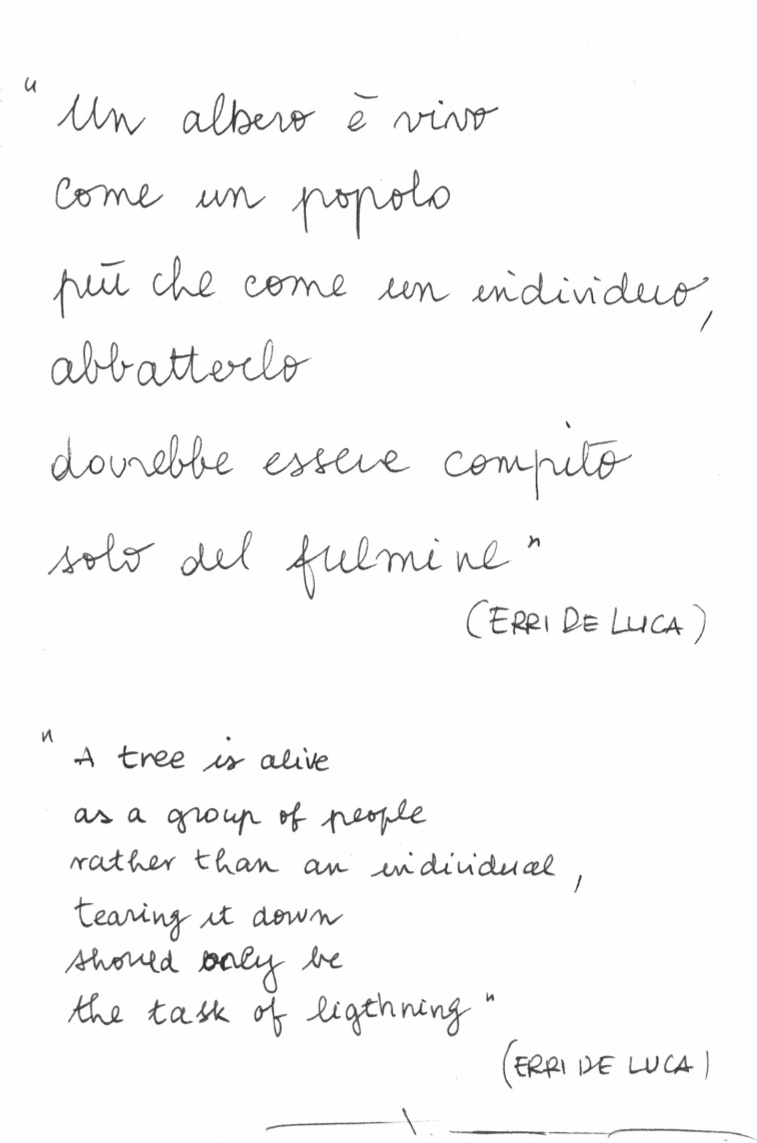 "Un albero è vivo
come un popolo
più che come un individuo,
abbatterlo
dovrebbe essere compito
solo del fulmine"
(ERRI DE LUCA)
"A tree is alive
as a group of people
rather than an individual,
tearing it down
should only be
the task of ligthning"
(ERRI DE LUCA)